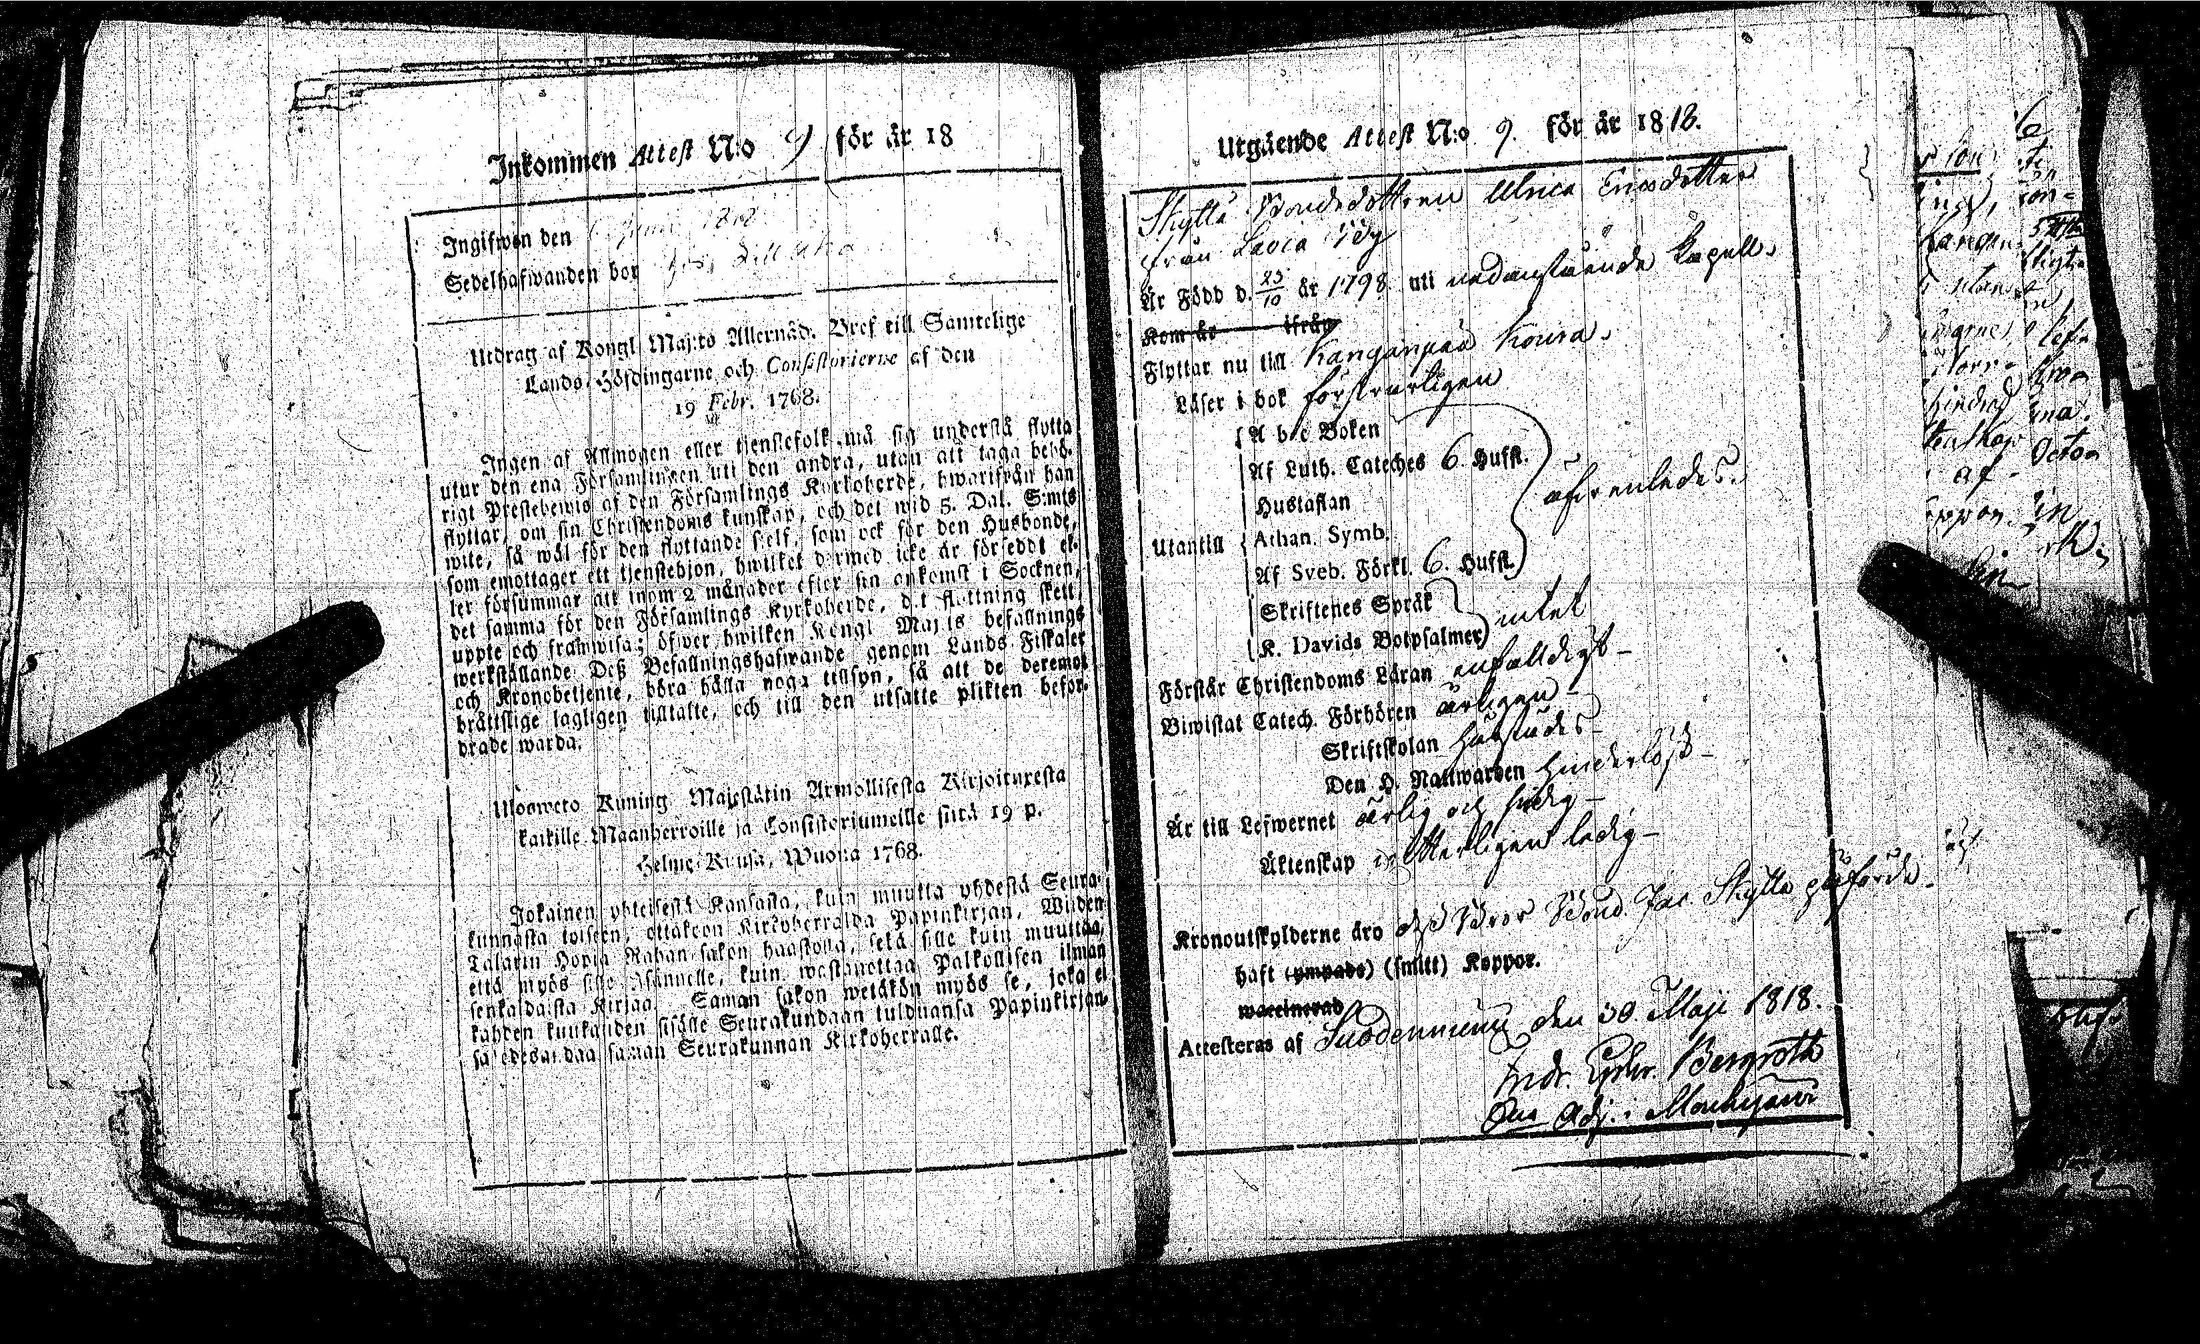 Inkommen Attest N:o 9 för år 18
Ingifwen den 6 Junii 1818
Sedelhafwanden bor
Utdrag af Kongl. Maj:ts Allernåd. Bref till Samtelige
Lands-Höfdingarne och Consistorierne af den
19 Febr. 1768.
Ingen af Allmogen eller tjenstefolk må sig understå flytta
utur den ena Församlingen uti den andra, utan att taga behö-
rigt Prestebewis af den Församlings Kyrkoherde, hwarifrån han
flyttar, om sin Christendoms kunskap, och det wid 5. Dal. S:mts
wite, så wäl för den flyttande sjelf, som ock för den Husbonde,
som emottager ett tjenstehjon, hwilket dermed icke är försedt el-
ler försummar att inom 2 månader efter sin ankomst i Socknen,
det samma för den Församlings Kyrkoherde, dit flyttning skett,
uppte och framwisa; öfwer hwilken Kongl Maj:ts befallnings
werkställande Deß Befallningshafwande genom Lands Fiskaler
och Kronobetjente, böra hålla noga tillsyn, så att de deremot
bråttslige lagligen tilltalte, och till den utsatte plikten befor-
drade warda.
Ulosweto Kuning. Majestätin Armollisesta Kirjoituxesta
kaikille Maanherroille ja Consistoriumeille siitä 19 p.
Helme-Kuusa, Wuona 1768.
Jokainen yhteisestä Kansasta, kuin muutta yhdestä Seura-
kunnasta toiseen, ottakoon Kirkoherralda Papinkirjan, Wiiden
Talarin Hopia Rahan sakon haastolla, sekä sille kuin muuttaa,
että myös sille Isännelle, kuin wastanottaa Palkollisen ilman
senkaldaista Kirjaa. Saman sakon wetäkön myös se, joka ei
kahden kuukauden sisälle Seurakundaan tulduansa Papinkirjan-
sa edesandaa saman Seurakunnan Kirkoherralle.
Utgående Attest N:o 9. för år 1818.
Skyttä Bondedottren Ulrica Ericsdotter
från Lavia By
Är Född d. 25/10 år 1798. uti nedanstående Kapell.
Kom år ifrån
Flyttar nu till Kangänpää Koura.
Läser i bok försvarligen
A b c Boken
Af Luth. Cateches 6. Hufst.
Hustaflan
Utantill Athan. Symb.
Af Sveb. Förkl. 6. Hufst.
Skriftenes Språk
K. Davids Botpsalmer intet
Förstår Christendoms Läran enfalldigt
Biwistat Catech. Förhören årligen
Skriftskolan
Den H. Nattwarden hinderlöst
Är till Lefwernet ärlig och sedig
Äktenskap ledig
Kronoutskylderne äro des Bror Bond. Jac Skyttä påförde.
haft (ympade) (smitt) Koppor.
waccinerad
Attesteras af Suodenniemi den 30. Maji 1818.
Bergroth
Adj. i Mouhijärvi